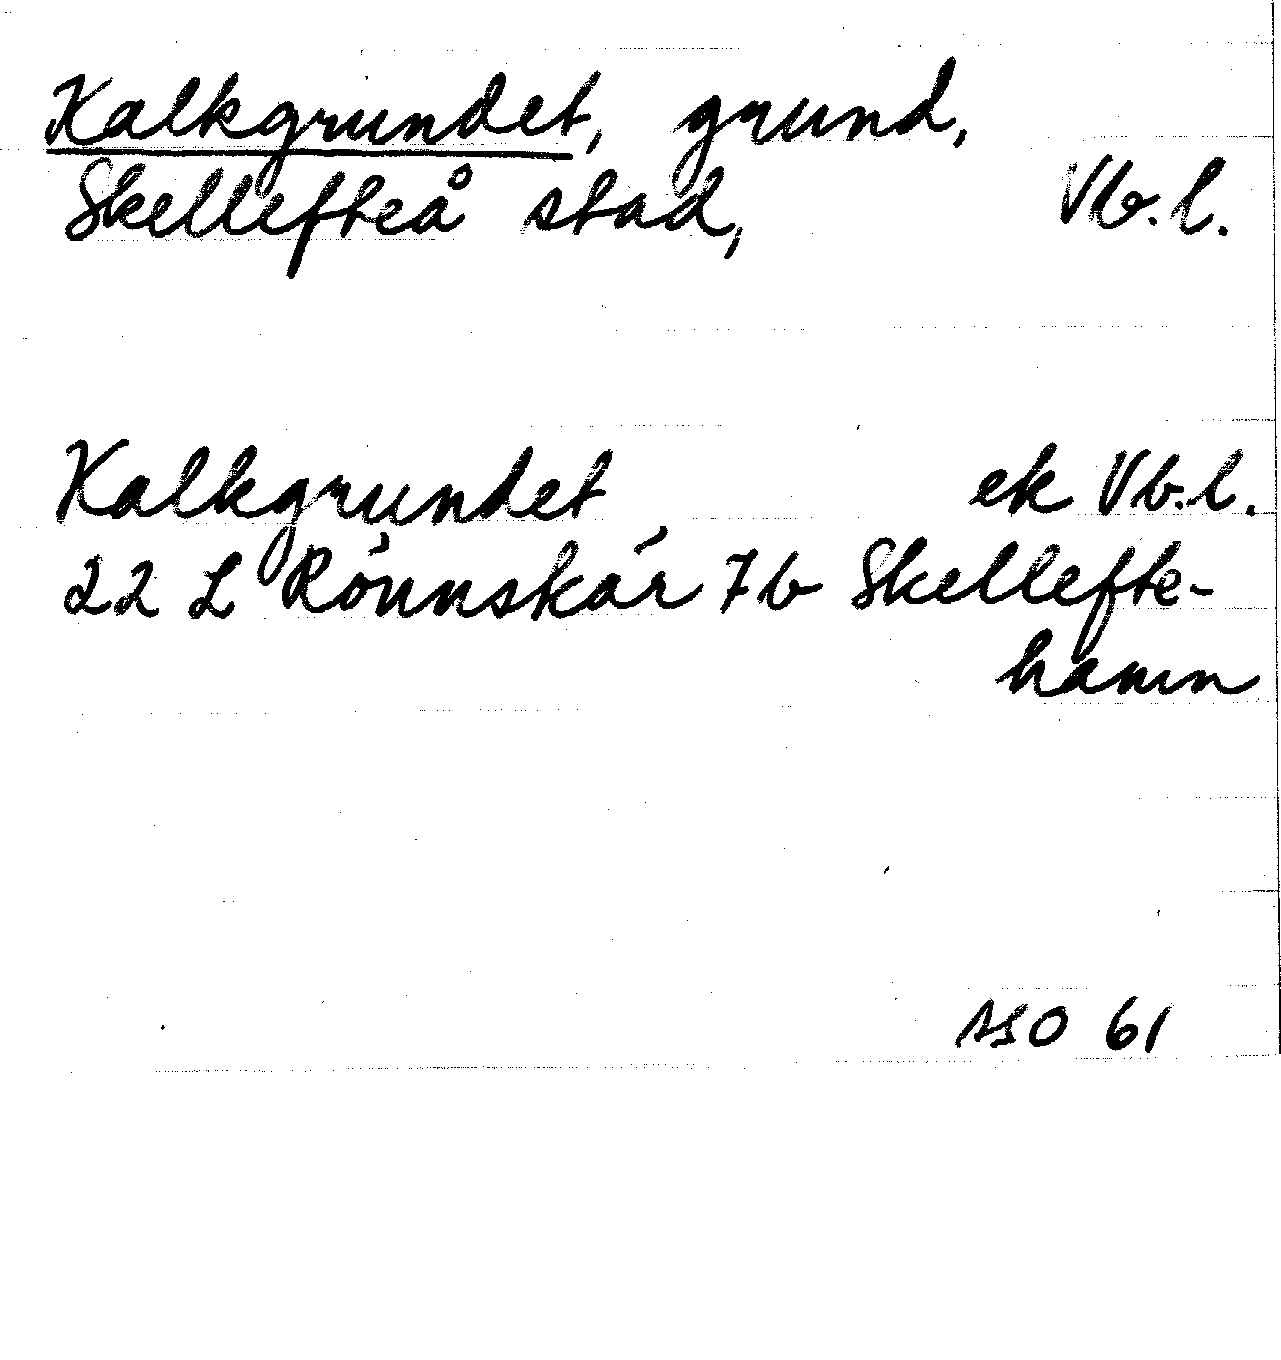 Kalkgrundet, grund,
Skellefteå stad, Vb. l.
Kalkgrundet ek Vb. l.
22 L Rönnskär 7b Skellefte-
hamn
ASO 61